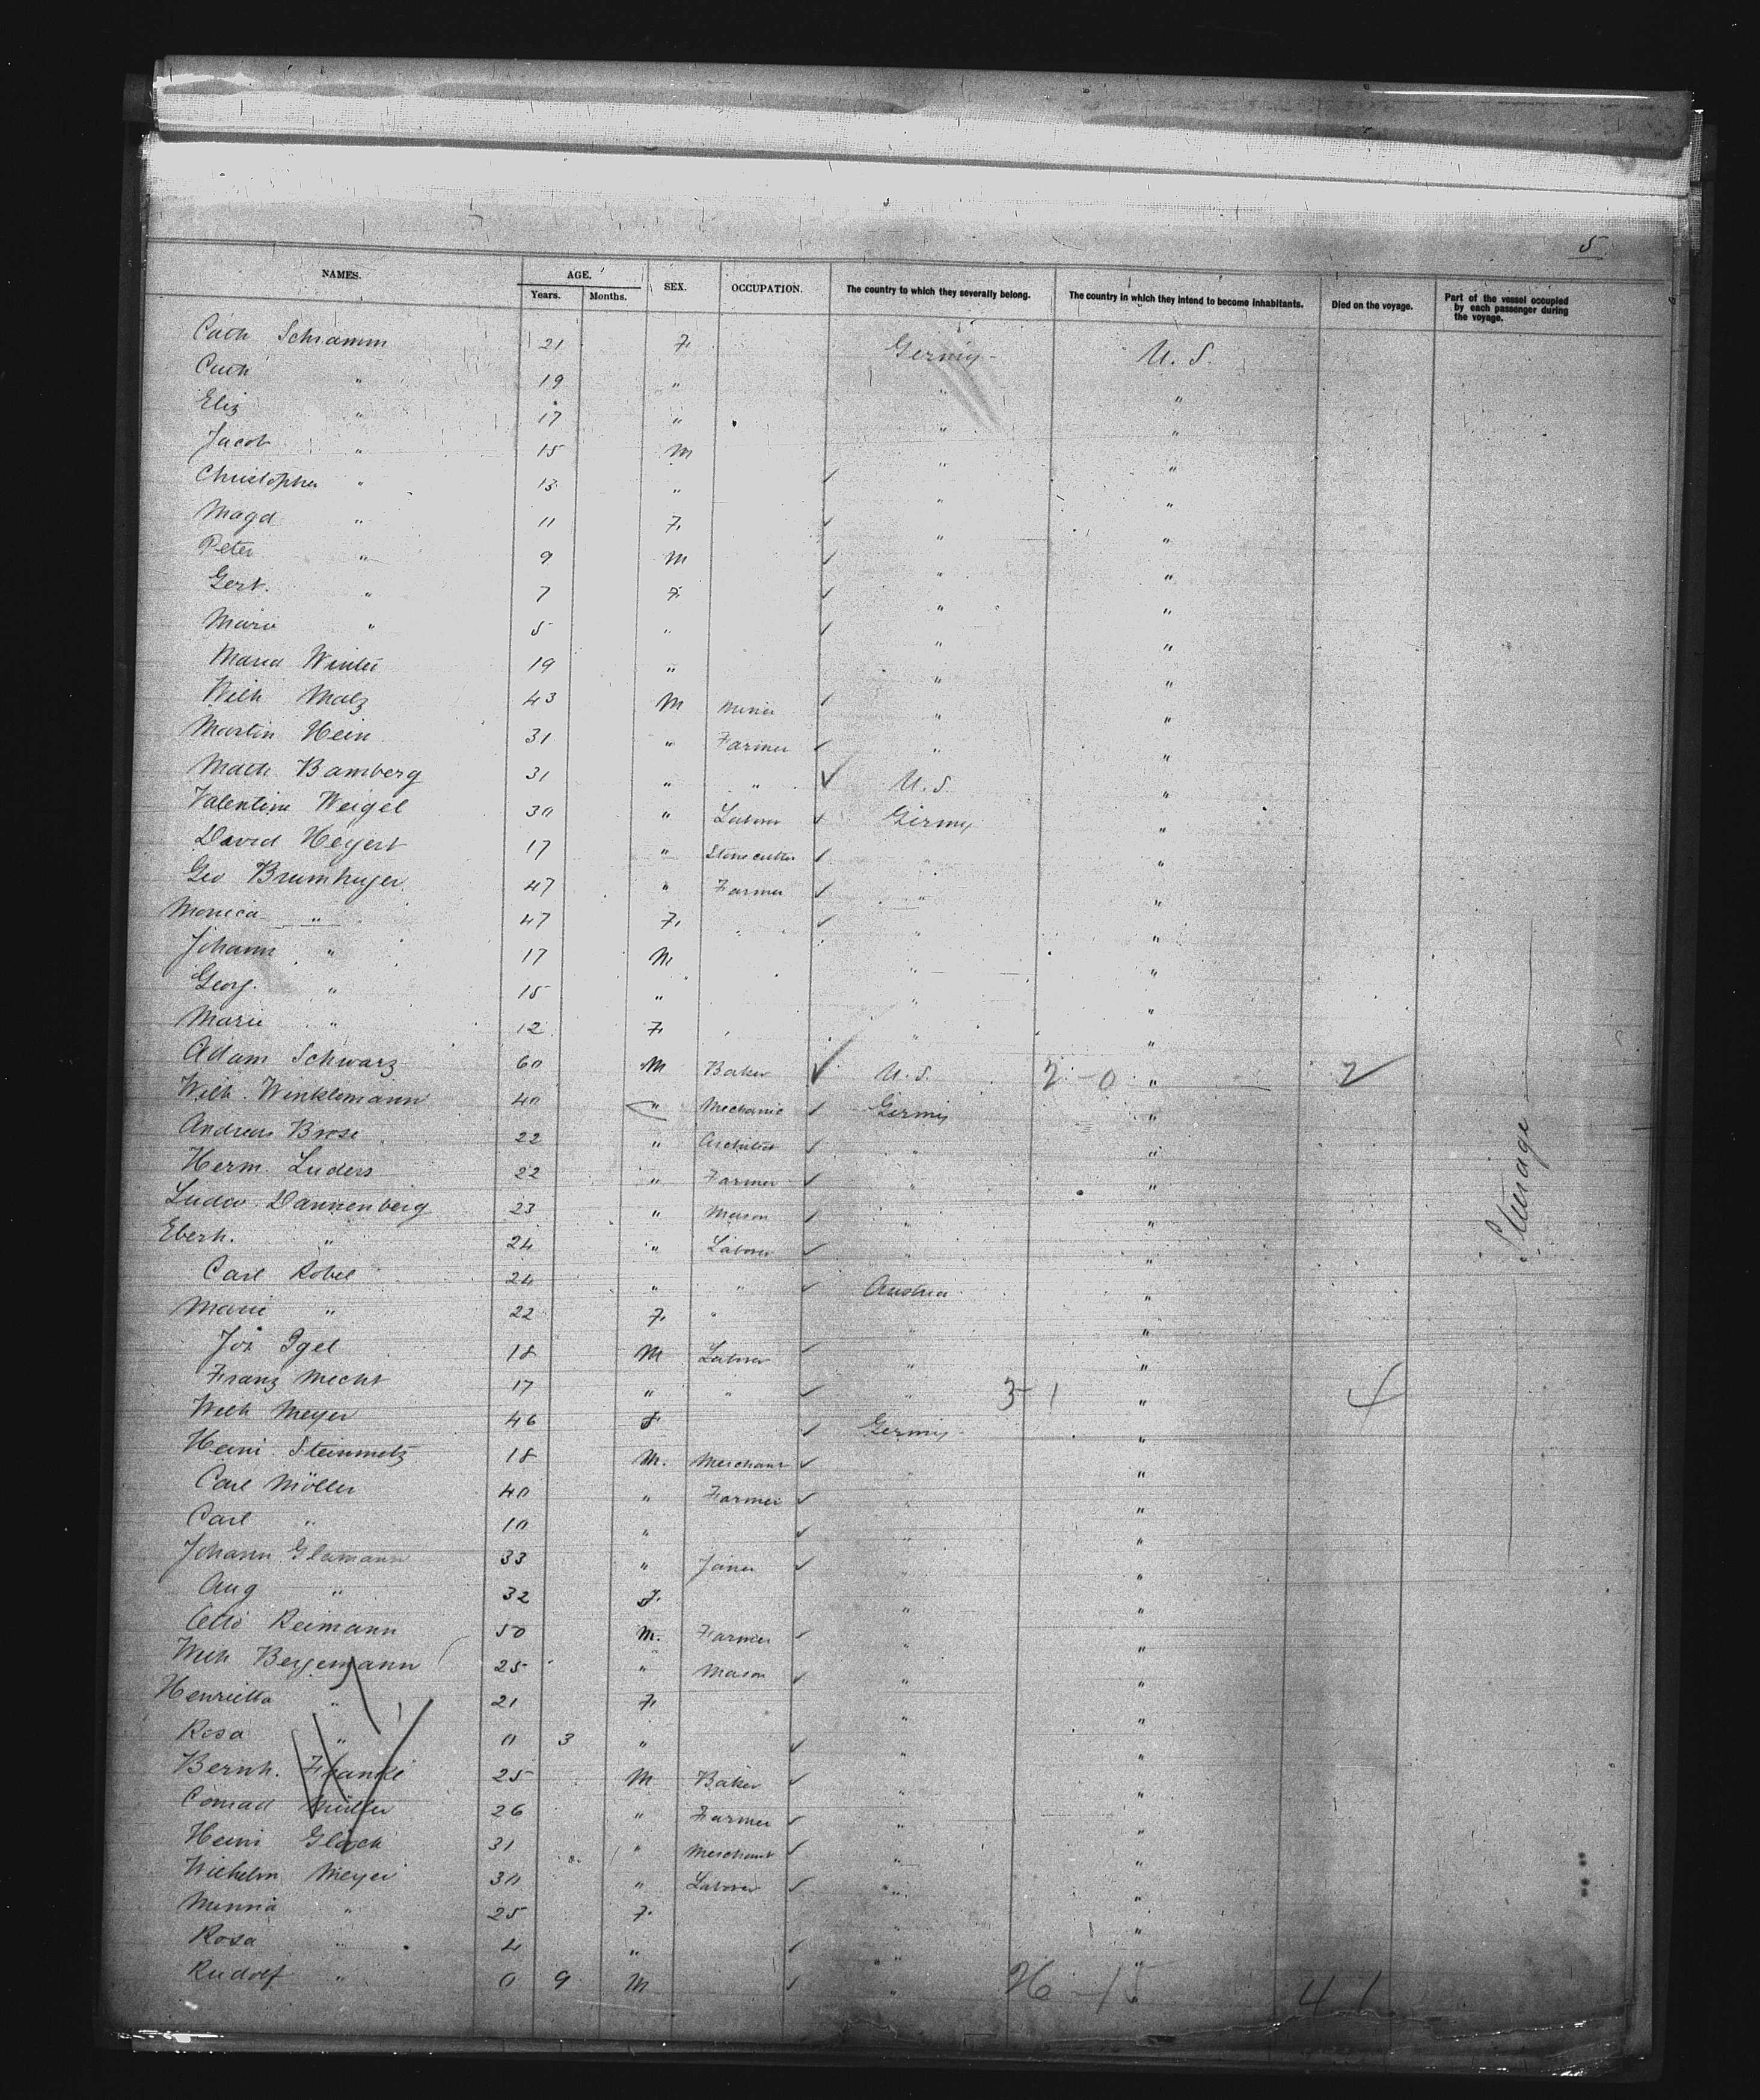 5
NAMES. AGE. Years. Months. SEX. OCCUPATION. The country to which they severally belong. The country in which they intend to become inhabitants. Died on the voyage. Part of the vessel occupied by each passenger during the voyage.
Cath Schramm 21 F. Germy U. S.
Cath " 19 " " "
Eliz " 17 " " "
Jacob " 15 M " "
Christopher " 13 " ✓ " "
Magd " 11 F. ✓ " "
Peter " 9 M ✓ " "
Gert. " 7 F. ✓ " "
Marie " 5 " ✓ " "
Maria Winter 19 " " "
Wilh Malz 43 M Miner ✓ " "
Martin Hein 31 " Farmer ✓ " "
Math Bamberg 31 " " ✓ U. S. "
Valentine Weigel 30 " Laborer ✓ Germy "
David Heyert 17 " Stonecutter ✓ " "
Geo 47 " Farmer ✓ " "
Monica " 47 F. ✓ " "
Johann " 17 M " "
Georg. " 15 " " "
Marie " 12 F. " "
Adam Schwarz 60 M Baker ✓ U. S. 2-0 " 2
Wilh. Winklemann 40 " Mechanic ✓ Germy "
Andreas Brose 22 " Architect ✓ " "
Herm. Luders 22 " Farmer ✓ " "
Ludw. Dannenberg 23 " Mason ✓ " "
Eberh. " 24 " Laborer ✓ " "
Steerage
Carl Kobel 24 " " ✓ Austria "
Marie " 22 F. " " "
Jos Igel 18 M Laborer ✓ " "
Franz Mecht 17 " " ✓ " 3-1 " 4
Wilh Meyer 46 F. ✓ Germy "
Heini Steinmetz 18 M. Merchant ✓ " "
Carl Möller 40 " Farmer ✓ " "
Carl " 10 " ✓ " "
Johann Glamann 33 " Joiner ✓ " "
Aug " 32 F. " "
Otto Reimann 50 M. Farmer ✓ " "
Wilh Bergemann 25 " Mason ✓ " "
Henrietta " 21 F. " "
Rosa " 0 3 " ✓ " "
Bernh. Franke 25 M Baker ✓ " "
Conrad Müller 26 " Farmer ✓ " "
Heini 31 " Merchant ✓ " "
Wilhelm Meyer 30 " Laborer ✓ " "
Minna " 25 F. " "
Rosa " 4 " ✓ " "
Rudolf " 0 9 M ✓ " 26-15 " 41